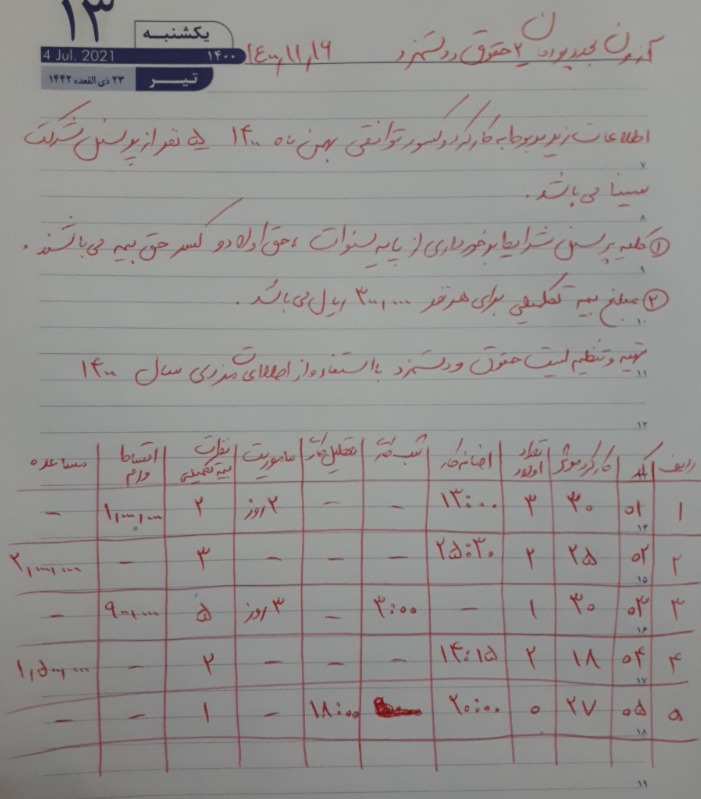 ۱۳
یکشنبه
4 Jul. 2021 ۱۴۰۰
تیر ۲۳ ذی القعده ۱۴۴۲
آزمون مجدد پودمان ۲ حقوق و دستمزد ۱۴۰۰/۱۱/۱۶
اطلاعات زیر مربوط به کارکرد و کسور توافقی بهمن ماه ۱۴۰۰ ۵ نفر از پرسنل شرکت
۷
سینا می باشد.
۸
① کلیه پرسنل شرایط برخورداری از پایه سنوات، حق اولاد و کسر حق بیمه می باشند.
۹
② مبلغ بیمه تکمیلی برای هر نفر ۳۰۰,۰۰۰ ریال می باشد.
۱۰
تهیه و تنظیم لیست حقوق و دستمزد با استفاده از اطلاعات مندرج سال ۱۴۰۰
۱۱
۱۲
ردیف کد کارکرد موثر تعداد اولاد اضافه کار شب کاری تعطیل کاری ماموریت نفرات بیمه تکمیلی اقساط وام مساعده
۱ ۰۱ ۳۰ ۳ ۱۳:۰۰ - - ۲ روز ۲ ۱,۰۰۰,۰۰۰ -
۱۴
۲ ۰۲ ۲۵ ۲ ۲۵:۳۰ - - - ۳ - ۲,۰۰۰,۰۰۰
۱۵
۳ ۰۳ ۳۰ ۱ - ۳:۰۰ - ۳ روز ۵ ۹۰۰,۰۰۰ -
۱۶
۴ ۰۴ ۱۸ ۲ ۱۴:۱۵ - - - ۲ - ۱,۵۰۰,۰۰۰
۱۷
۵ ۰۵ ۲۷ ۰ ۲۰:۰۰ ۱۸:۰۰ - ۱ - -
۱۸
۱۹